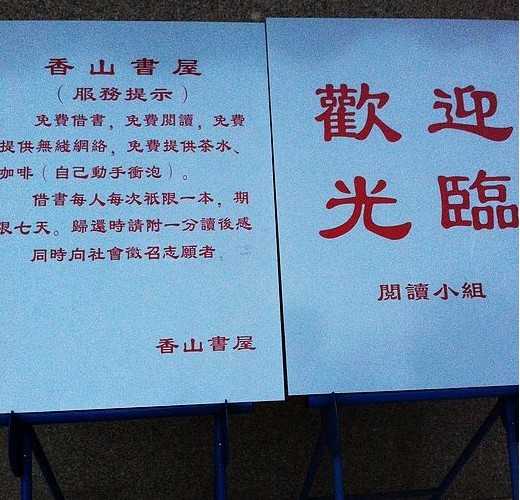 香山書屋
（服務提示）
免費借書，免費閱讀，免費
提供無綫網絡，免費提供茶水、
咖啡（自己動手衝泡）。
借書每人每次祇限一本，期
限七天。歸還時請附一分讀後感
同時向社會徵召志願者.
香山書屋
歡迎
光臨
閱讀小組